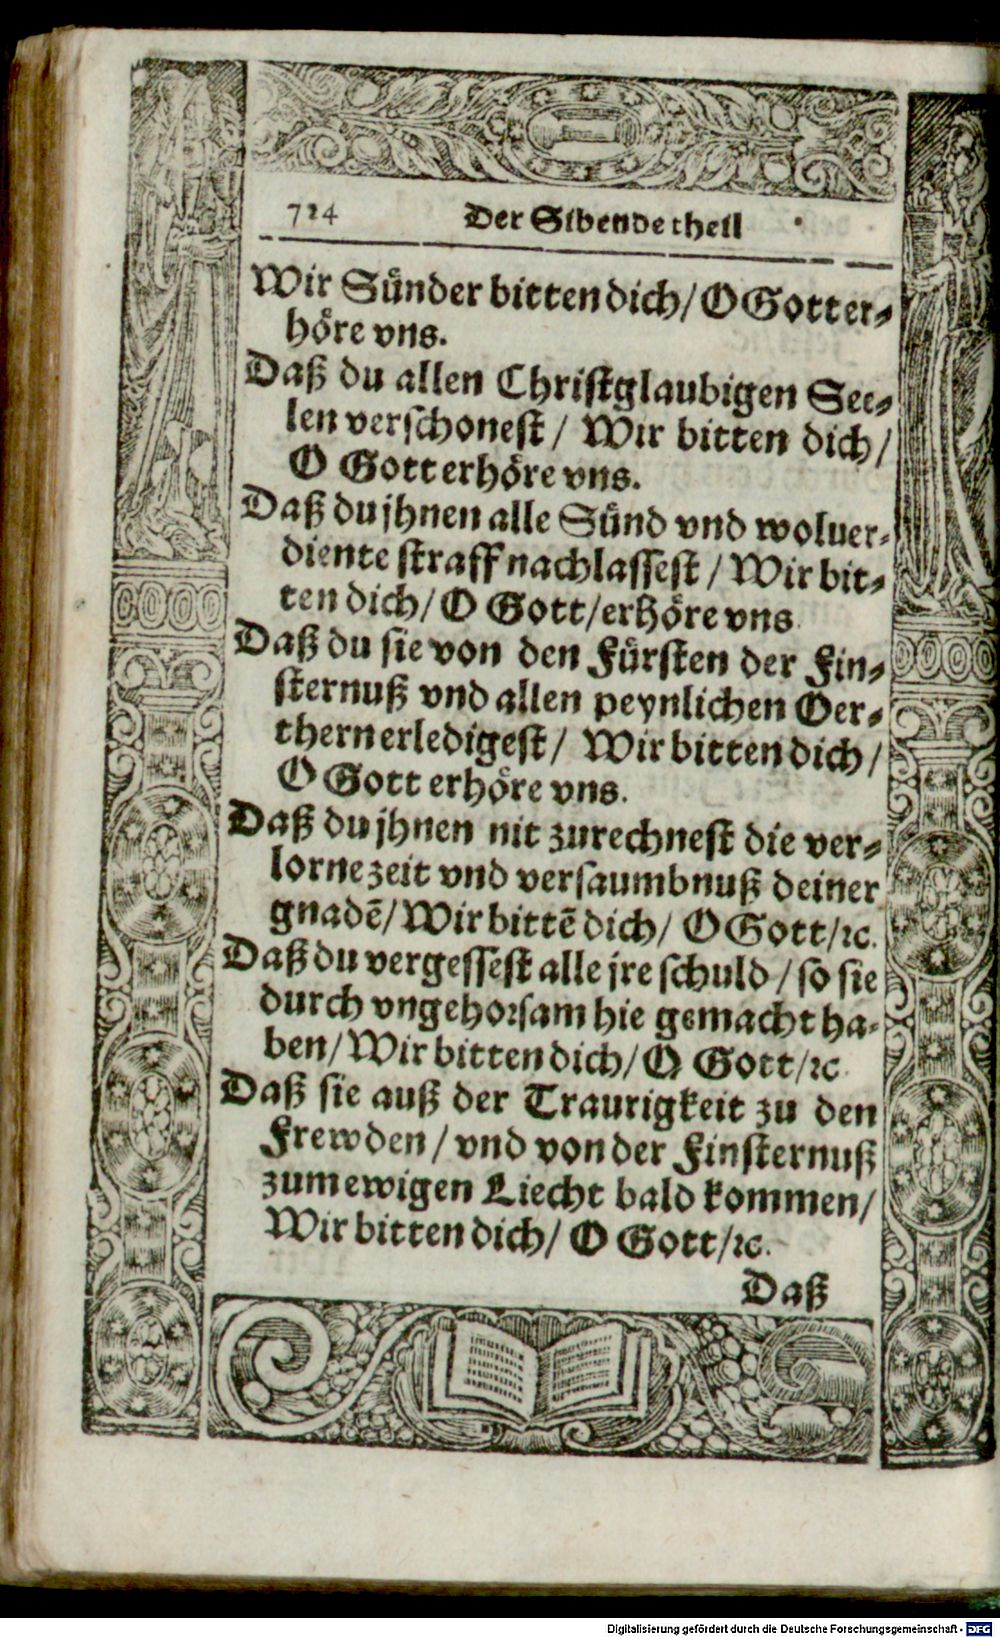 724 Der Sibende theil
Wir Sünder bitten dich/ O Gott er-
höre vns.
Daß du allen Christglaubigen See-
len verschonest/ Wir bitten dich/
O Gott erhöre vns.
Daß du jhnen alle Sünd vnd woluer-
diente straff nachlassest/ Wir bit-
ten dich/ O Gott/ erhöre vns.
Daß du sie von den Fürsten der Fin-
sternuß vnd allen peynlichen Oer-
thern erledigest/ Wir bitten dich/
O Gott erhöre vns.
Daß du jhnen nit zurechnest die ver-
lorne zeit vnd versaumbnuß deiner
gnadē/ Wir bittē dich/ O Gott/ ꝛc.
Daß du vergessest alle jre schuld/ so sie
durch vngehorsam hie gemacht ha-
ben/ Wir bitten dich/ O Gott/ ꝛc.
Daß sie auß der Traurigkeit zu den
Frewden/ vnd von der Finsternuß
zum ewigen Liecht bald kommen/
Wir bitten dich/ O Gott/ ꝛc.
Daß
Digitalisierung gefördert durch die Deutsche Forschungsgemeinschaft - DFG